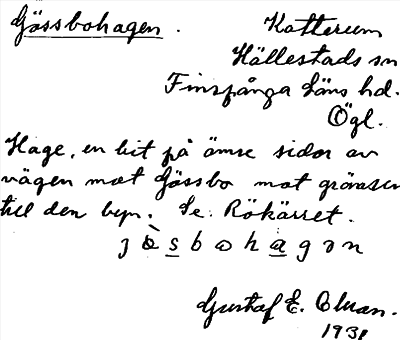 Gåssbohagen.
Katterum
Hällestads sn
Finspånga läns hd.
Ögl.
Hage, en bit på ömse sidor av
vägen mot Gåssbo mot gränsen
till den byn. Se: Rökärret.
Gustaf E.
1931